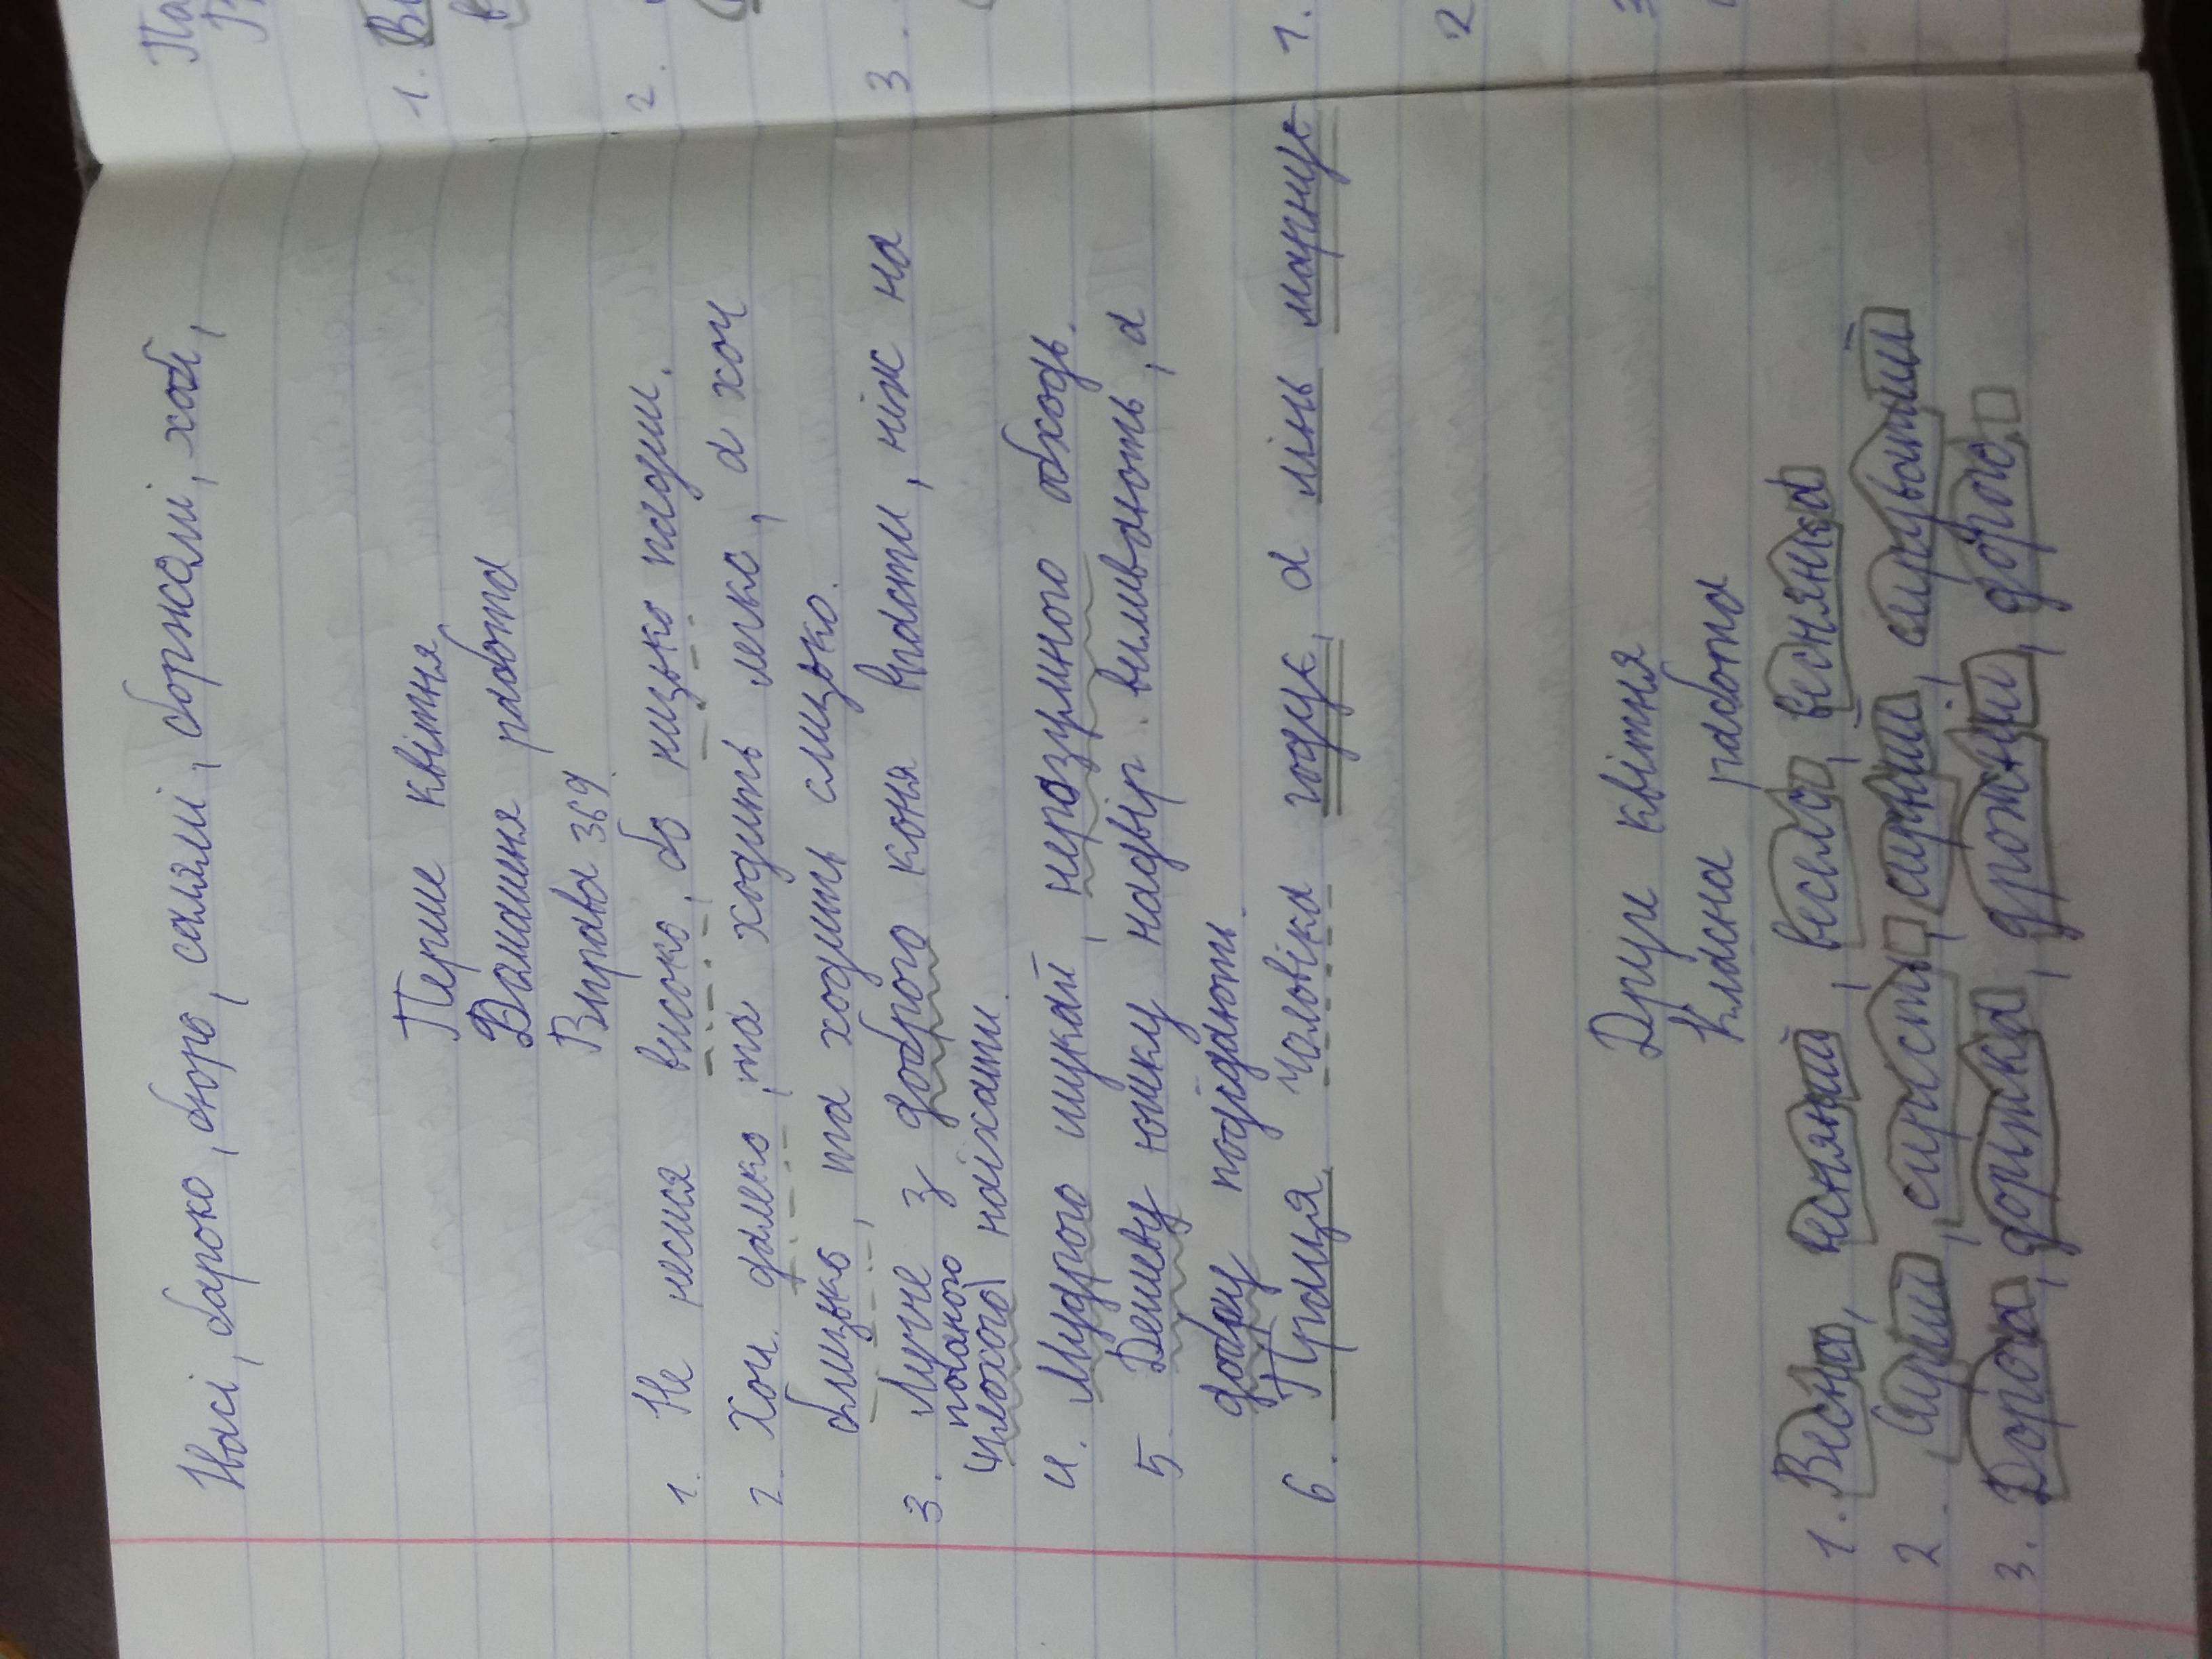 Івасі, бароко, бюро, салямі, боржомі, хобі,
Перше квітня
Домашня робота
Вправа 369.
1. Не несися високо, бо низько падеш.
2. Хоч далеко, та ходить легко, а хоч
близько, та ходить слизько.
3. Лучче з доброго коня впасти, ніж на
поганого
(плохого) поїхати.
4. Мудрого шукай, неразумного обходь.
5. Дешеву юшку надвір виливають, а
добру поїдають.
6. Праця чоловіка годує, а лінь марнує
Друге квітня
Класна робота
1. Весна, весняний, весела, веснянка
2. Сирий, сирість, сирний, сируватий
3. Дорога, доріжка, дорожній, дорого.
1.
2.
3.
1.
2
3